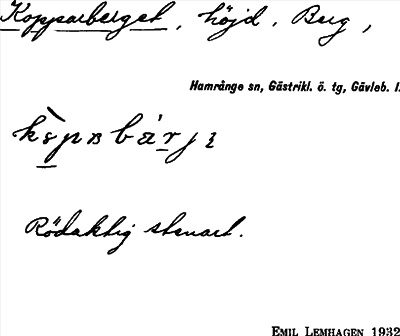 Kopparberget, höjd, Berg,
Hamrånge sn, Gästrikl. ö. tg, Gävleb. l.
Rödaktig stenart.
EMIL LEMHAGEN 1932